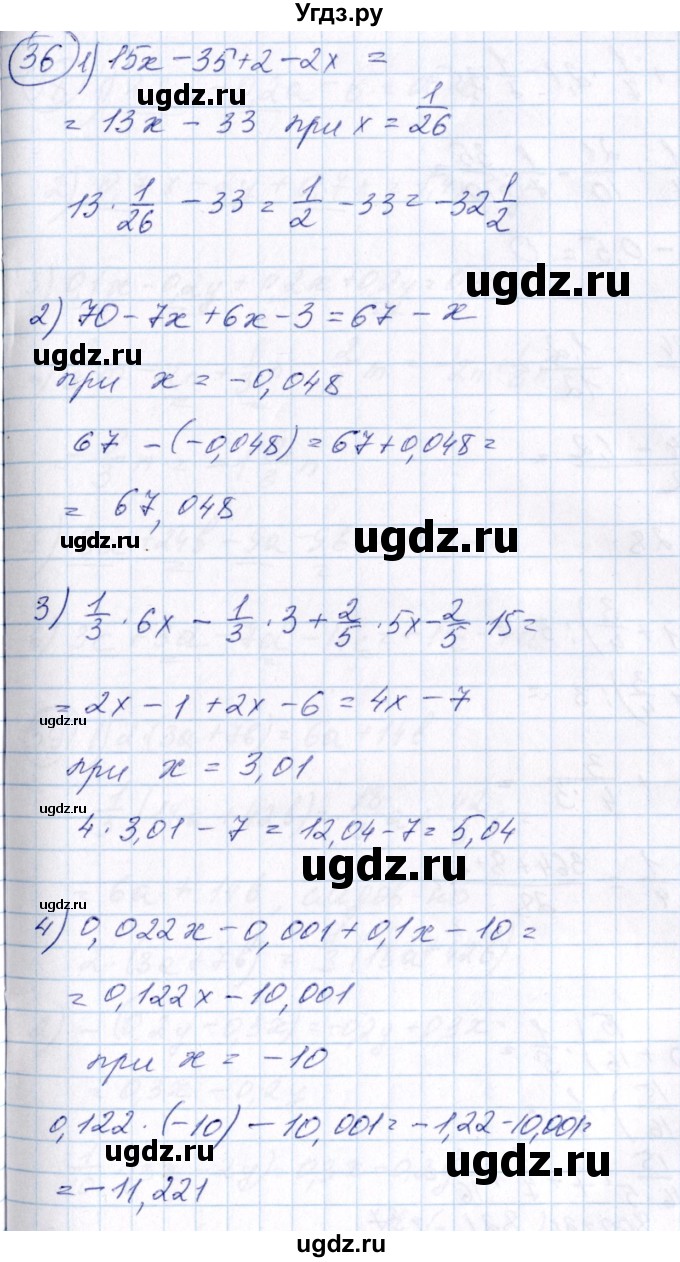 Угдз.ру
36 1) 15x − 35 + 2 − 2x =
ugdz.ru
= 13x − 33 при x = 1/26
13 · 1/26 − 33 = 1/2 − 33 = −32 1/2
ugdz.ru
2) 70 − 7x + 6x − 3 = 67 − x
ugdz.ru
при x = −0,048
67 − (−0,048) = 67 + 0,048 =
= 67,048
ugdz.ru
3) 1/3 · 6x − 1/3 · 3 + 2/5 · 5x − 2/5 · 15 =
= 2x − 1 + 2x − 6 = 4x − 7
ugdz.ru
при x = 3,01
ugdz.ru
4 · 3,01 − 7 = 12,04 − 7 = 5,04
ugdz.ru
4) 0,022x − 0,001 + 0,1x − 10 =
ugdz.ru
= 0,122x − 10,001
при x = −10
0,122 · (−10) − 10,001 = −1,22 − 10,001 =
ugdz.ru
ugdz.ru
= −11,221
ugdz.ru